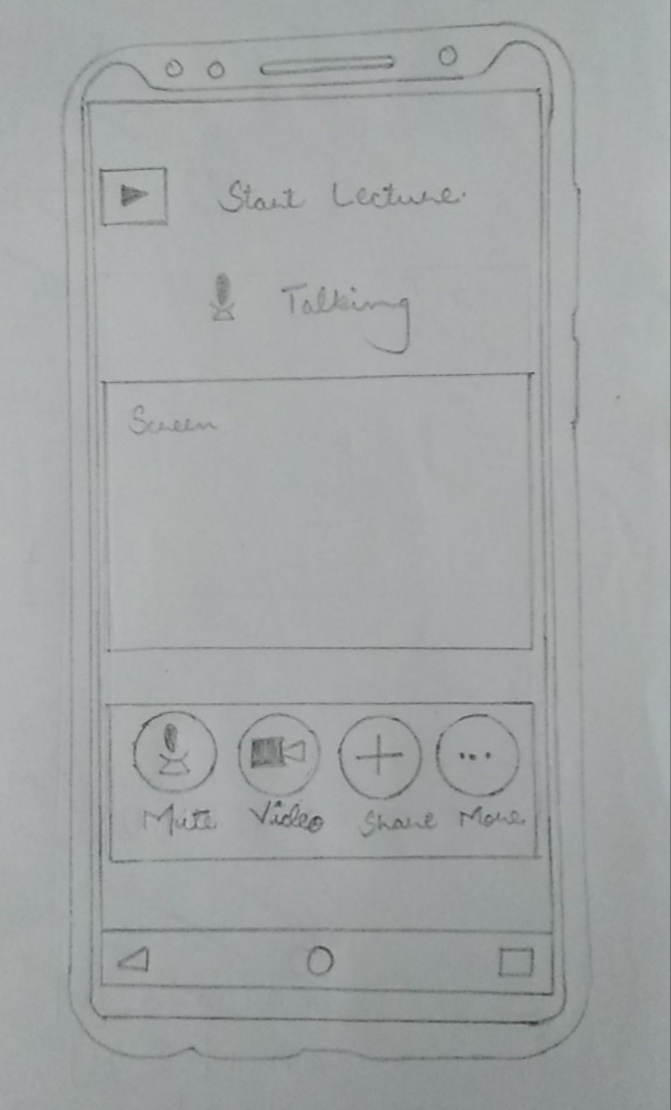 Start Lecture.
Talking
Screen
Mute Video Share More